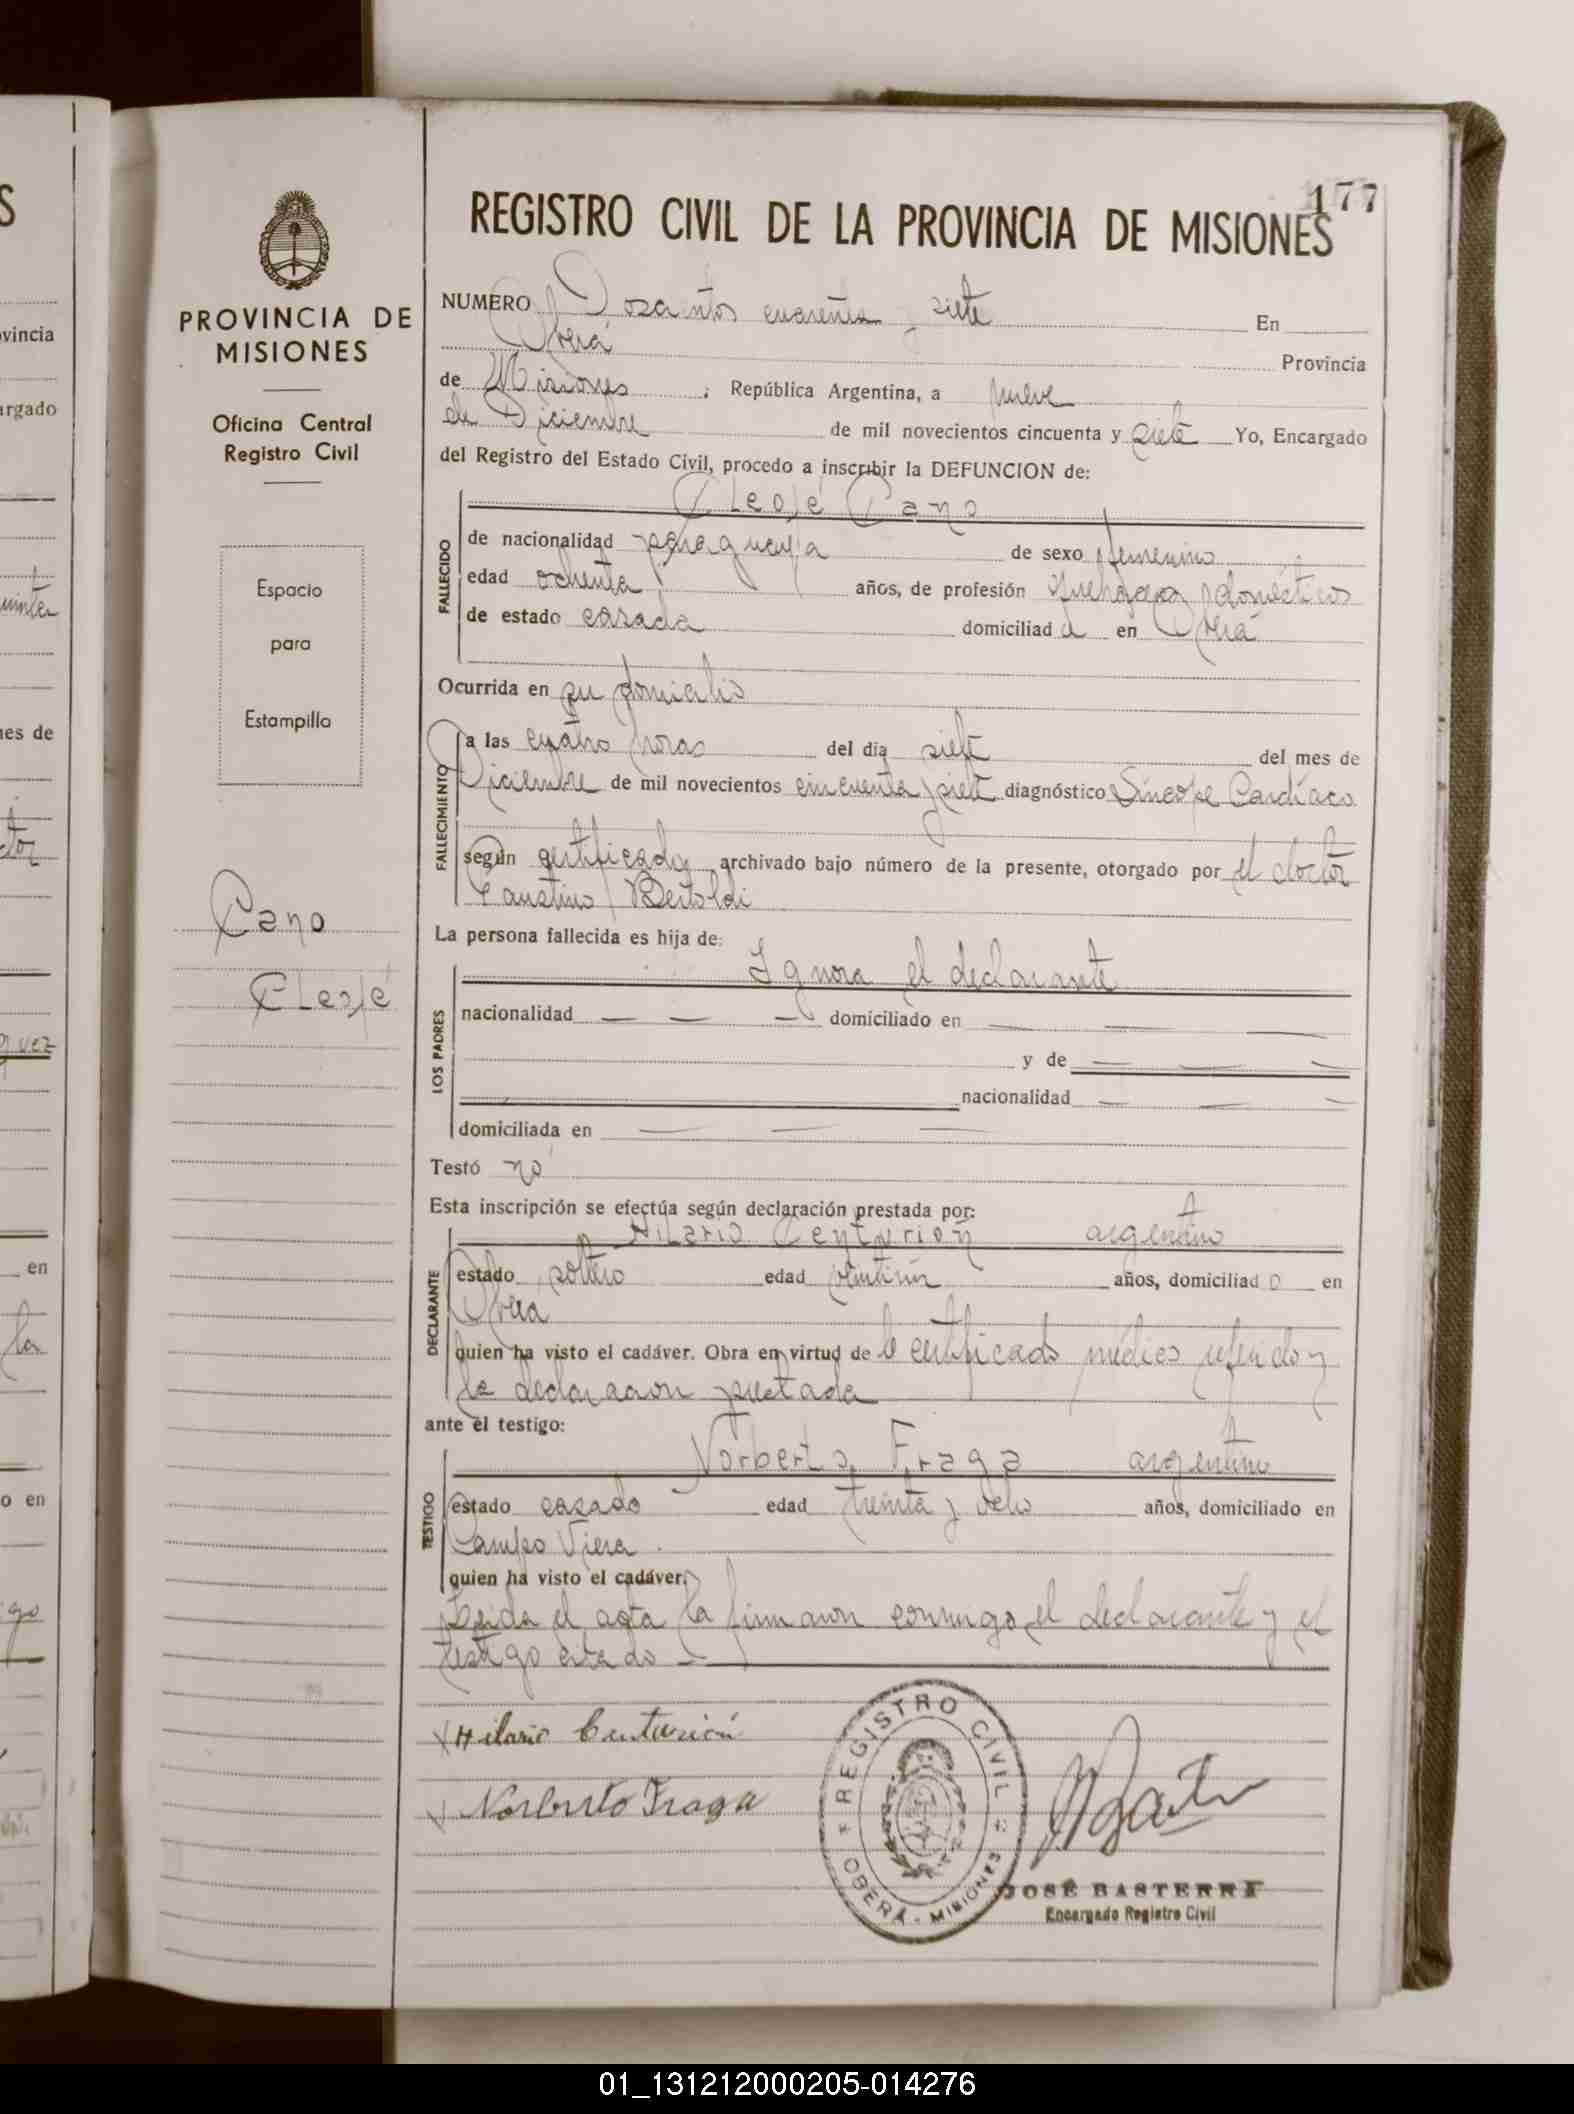 177
REGISTRO CIVIL DE LA PROVINCIA DE MISIONES
PROVINCIA DE
MISIONES
Oficina Central
Registro Civil
Espacio
para
Estampilla
Cano
Cleofé
NUMERO Doscientos cuarenta y siete En
Oberá Provincia
de Misiones ; República Argentina, a nueve
de Diciembre de mil novecientos cincuenta y siete Yo, Encargado
del Registro del Estado Civil, procedo a inscribir la DEFUNCION de:
Cleofé Cano
FALLECIDO
de nacionalidad paraguaya de sexo femenino
edad ochenta años, de profesión quehaceres domésticos
de estado casada domiciliad a en Oberá
Ocurrida en su domicilio
FALLECIMIENTO
a las cuatro horas del día siete del mes de
Diciembre de mil novecientos cincuenta y siete diagnóstico Síncope Cardíaco
según certificado archivado bajo número de la presente, otorgado por el doctor
Faustino Bertoldi
La persona fallecida es hija de:
LOS PADRES
Ignora el declarante
nacionalidad — — — domiciliado en — — —
y de — — —
nacionalidad — — —
domiciliada en — — —
Testó no
Esta inscripción se efectúa según declaración prestada por:
DECLARANTE
Hilario Centurión argentino
estado soltero edad veintiún años, domiciliad o en
Oberá
quien ha visto el cadáver. Obra en virtud de l certificado médico referido y
la declaracion prestada
ante el testigo:
TESTIGO
Norberto Fraga argentino
estado casado edad treinta y ocho años, domiciliado en
Campo Viera
quien ha visto el cadáver.
Leida el acta la firmaron conmigo el declarante y el
testigo citado —
Hilario Centurión
Norberto Fraga
REGISTRO CIVIL
OBERÁ - MISIONES
JOSÉ BASTERRA
Encargado Registro Civil
01_131212000205-014276